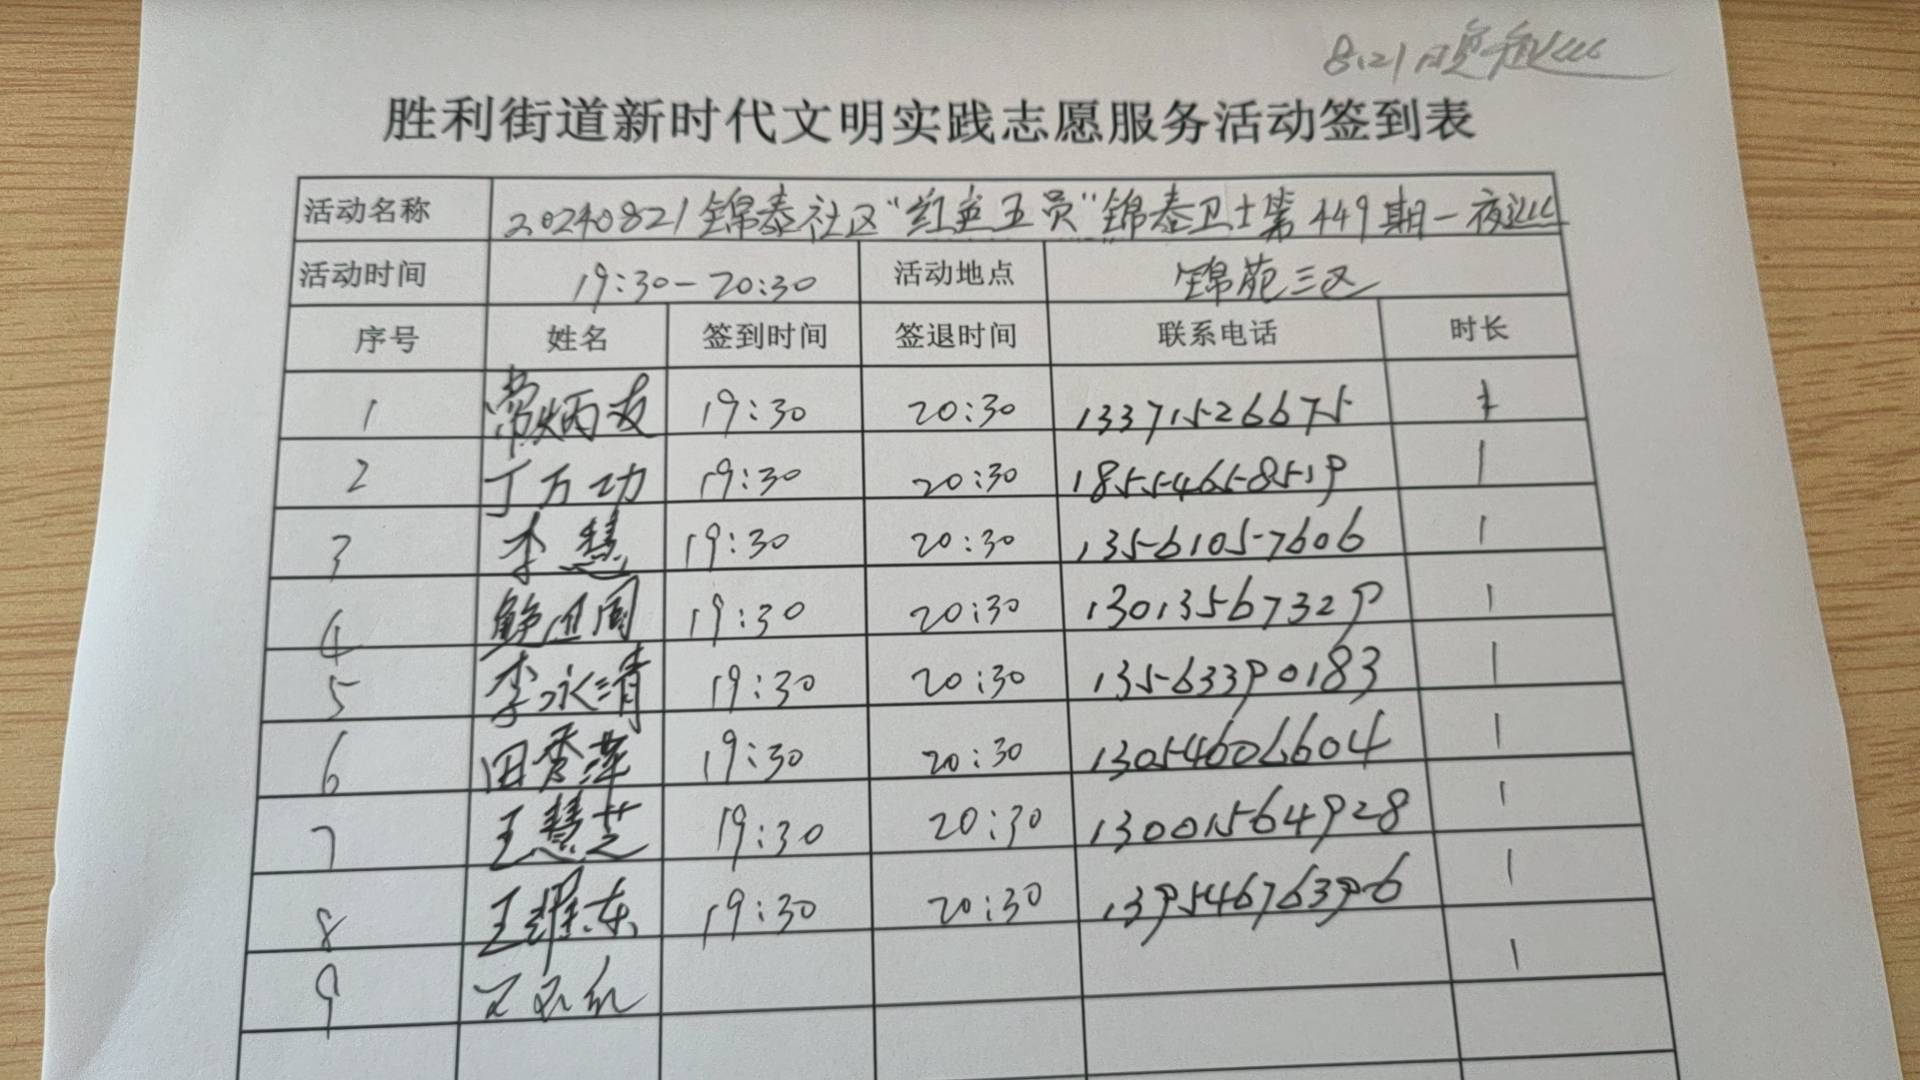 8.21
胜利街道新时代文明实践志愿服务活动签到表
活动名称 20240821锦泰社区“红色五员”锦泰卫士第449期—夜巡
活动时间 19:30-20:30 活动地点 锦苑三区
序号 姓名 签到时间 签退时间 联系电话 时长
1 常炳友 19:30 20:30 13371526675 1
2 丁万功 19:30 20:30 18554658519 1
3 李慧 19:30 20:30 13561057606 1
4 19:30 20:30 13013567329 1
5 李永清 19:30 20:30 13563390183 1
6 田秀萍 19:30 20:30 13054606604 1
7 王慧芝 19:30 20:30 13001564928 1
8 王维东 19:30 20:30 13954676396 1
9 1